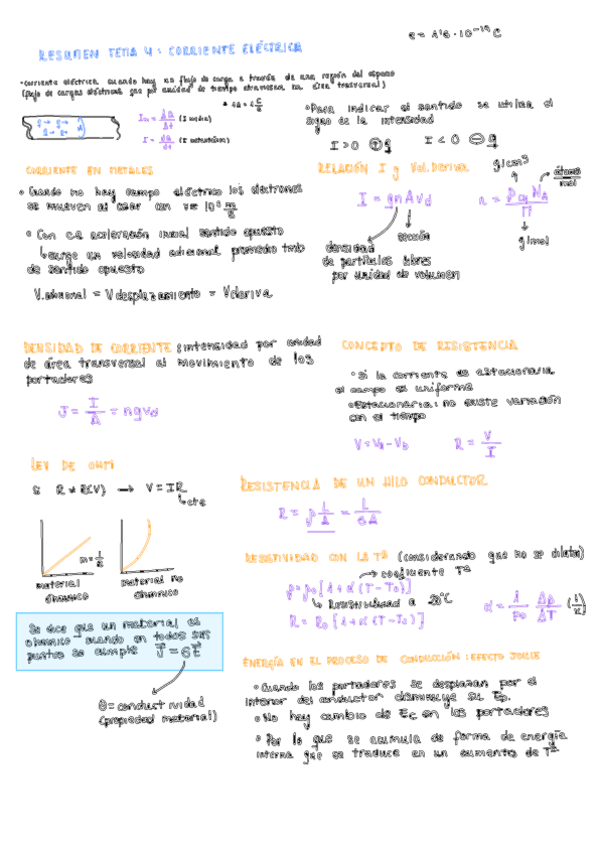 e = 1'6 · 10⁻¹⁹ C
RESUMEN TEMA 4: CORRIENTE ELÉCTRICA
• Corriente eléctrica cuando hay un flujo de carga a través de una región del espacio
(flujo de cargas eléctricas que por unidad de tiempo atraviesa un área trasversal)
• 1A = 1 C/s
Im = ΔQ/Δt (I media)
I = dq/dt (I instantánea)
• Para indicar el sentido se utiliza el
signo de la intensidad
I > 0 ⊕ q I < 0 ⊖ q
CORRIENTE EN METALES
• Cuando no hay campo eléctrico los electrones
se mueven al azar con v = 10⁶ m/s
• Con c.e aceleración inicial sentido opuesto
↳ surge un velocidad adicional promedio tmb
de sentido opuesto
V.adicional = V desplazamiento = V deriva
RELACIÓN I y Vel. Deriva
I = qnAVd
sección
densidad
de partículas libres
por unidad de volumen
g/cm³
n = ρ NA / M
átomos/mol
g/mol
DENSIDAD DE CORRIENTE: intensidad por unidad
de área transversal al movimiento de los
portadores
J = I/A = nqvd
CONCEPTO DE RESISTENCIA
• Si la corriente es estacionaria
el campo es uniforme
• Estacionaria: no existe variación
con el tiempo
V = Va - Vb R = V/I
LEY DE OHM
Si R ≠ R(V) → V = IR
↳ cte
material
óhmnico
material no
óhmnico
Se dice que un material es
óhmnico cuando en todos sus
puntos se cumple J = σE
σ = conductividad
(propiedad material)
RESISTENCIA DE UN HILO CONDUCTOR
R = ρ L/A = L/σA
RESISTIVIDAD CON LA Tª (considerando que no se dilata)
ρ = ρ₀ [1 + α (T - T₀)]
coeficiente Tª
↳ Resistividad a 20°C
R = R₀ [1 + α (T - T₀)]
α = 1/ρ₀ Δρ/ΔT (1/K)
ENERGÍA EN EL PROCESO DE CONDUCCIÓN: EFECTO JOULE
• Cuando los portadores se desplazan por el
interior del conductor disminuye su Ep.
• No hay cambio de Ec en los portadores
• Por lo que se acumula de forma de energía
interna que se traduce en un aumento de Tª